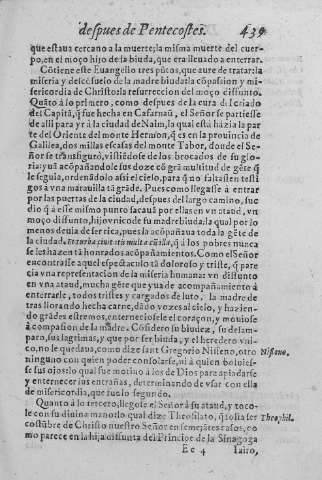 despues de Pentecostes. 439
que estaua cercano a la muerte; la misma muerte del cuer-
po, en el moço hijo de la biuda, que era lleuado a enterrar.
Cõtiene este Euangelio tres pũtos, que aure de tratar: la
miseria y descõsuelo de la madre biuda: la cõpassion y mi-
sericordia de Christo: la resurreccion del moço diffunto.
Quãto â lo primero, como despues de la cura del criado
del Capitã, q̃ fue hecha en Cafarnaũ, el Señor se partiesse
de alli para yr â la ciudad de Naĩm, la qual està hàzia la par
te del Oriente del monte Hermon, q̃ es en la prouincia de
Galilea, dos millas escasas del monte Tabor, donde el Se-
ñor se transfigurò, vistiẽdose de los brocados de su glo-
ria: yuã acõpañandole sus doze cõ grã multitud de gẽte q̃
le seguia, ordenãdolo assi el cielo, para q̃ no faltassen testi
gos â vna marauilla tã grãde. Pues como llegasse â entrar
por las puertas de la ciudad, despues del largo camino, suc
dio q̃ â este mismo punto sacauã por ellas en vn ataud, vn
moço diffunto, hijo vnico de su madre biuda: la qual por lo
menos deuia de ser rica, pues la acõpañaua toda la gẽte de
la ciudad. Et turba ciuitatis multa cũ illa, q̃ â los pobres nunca
se les hazẽ tã honrados acõpañamientos. Como el Señor
encontrasse aquel espectaculo tã doloroso y triste, q̃ pare
cia vna representacion de la miseria humana: vn diffunto
en vna ataud, mucha gẽte que yua de acompañamiento â
enterrarle, todos tristes y cargados de luto, la madre de
tras llorando hecha carne, dado vozes al cielo, y hazien-
do grãdes estremos, enterneciosele el coraçon, y mouiose
â compasion de la madre. Cõsidero su biudez, su desam-
paro, sus lagrimas, y que por ser biuda, y el heredero vni-
co, no le quedaua, como dize sant Gregorio Nisseno, otro Nisseno.
ninguno con quien poder consolarse, ni â quien boluies-
se sus ojos: lo qual fue motiuo â los de Dios para apiadarse
y enternecer sus entrañas, determinando de vsar con ella
de misericordia, que fue lo segundo.
Quanto â lo tercero, llegose el Señor â su ataud, y toco-
le con su diuina mano: lo qual dize Theofilato, q̃ solia ser Theophil.
costũbre de Christo nuestro Señor en semejãtes casos, co
mo parece en la hija difunta del Principe de la Sinagoga
Ee 4 Iairo,